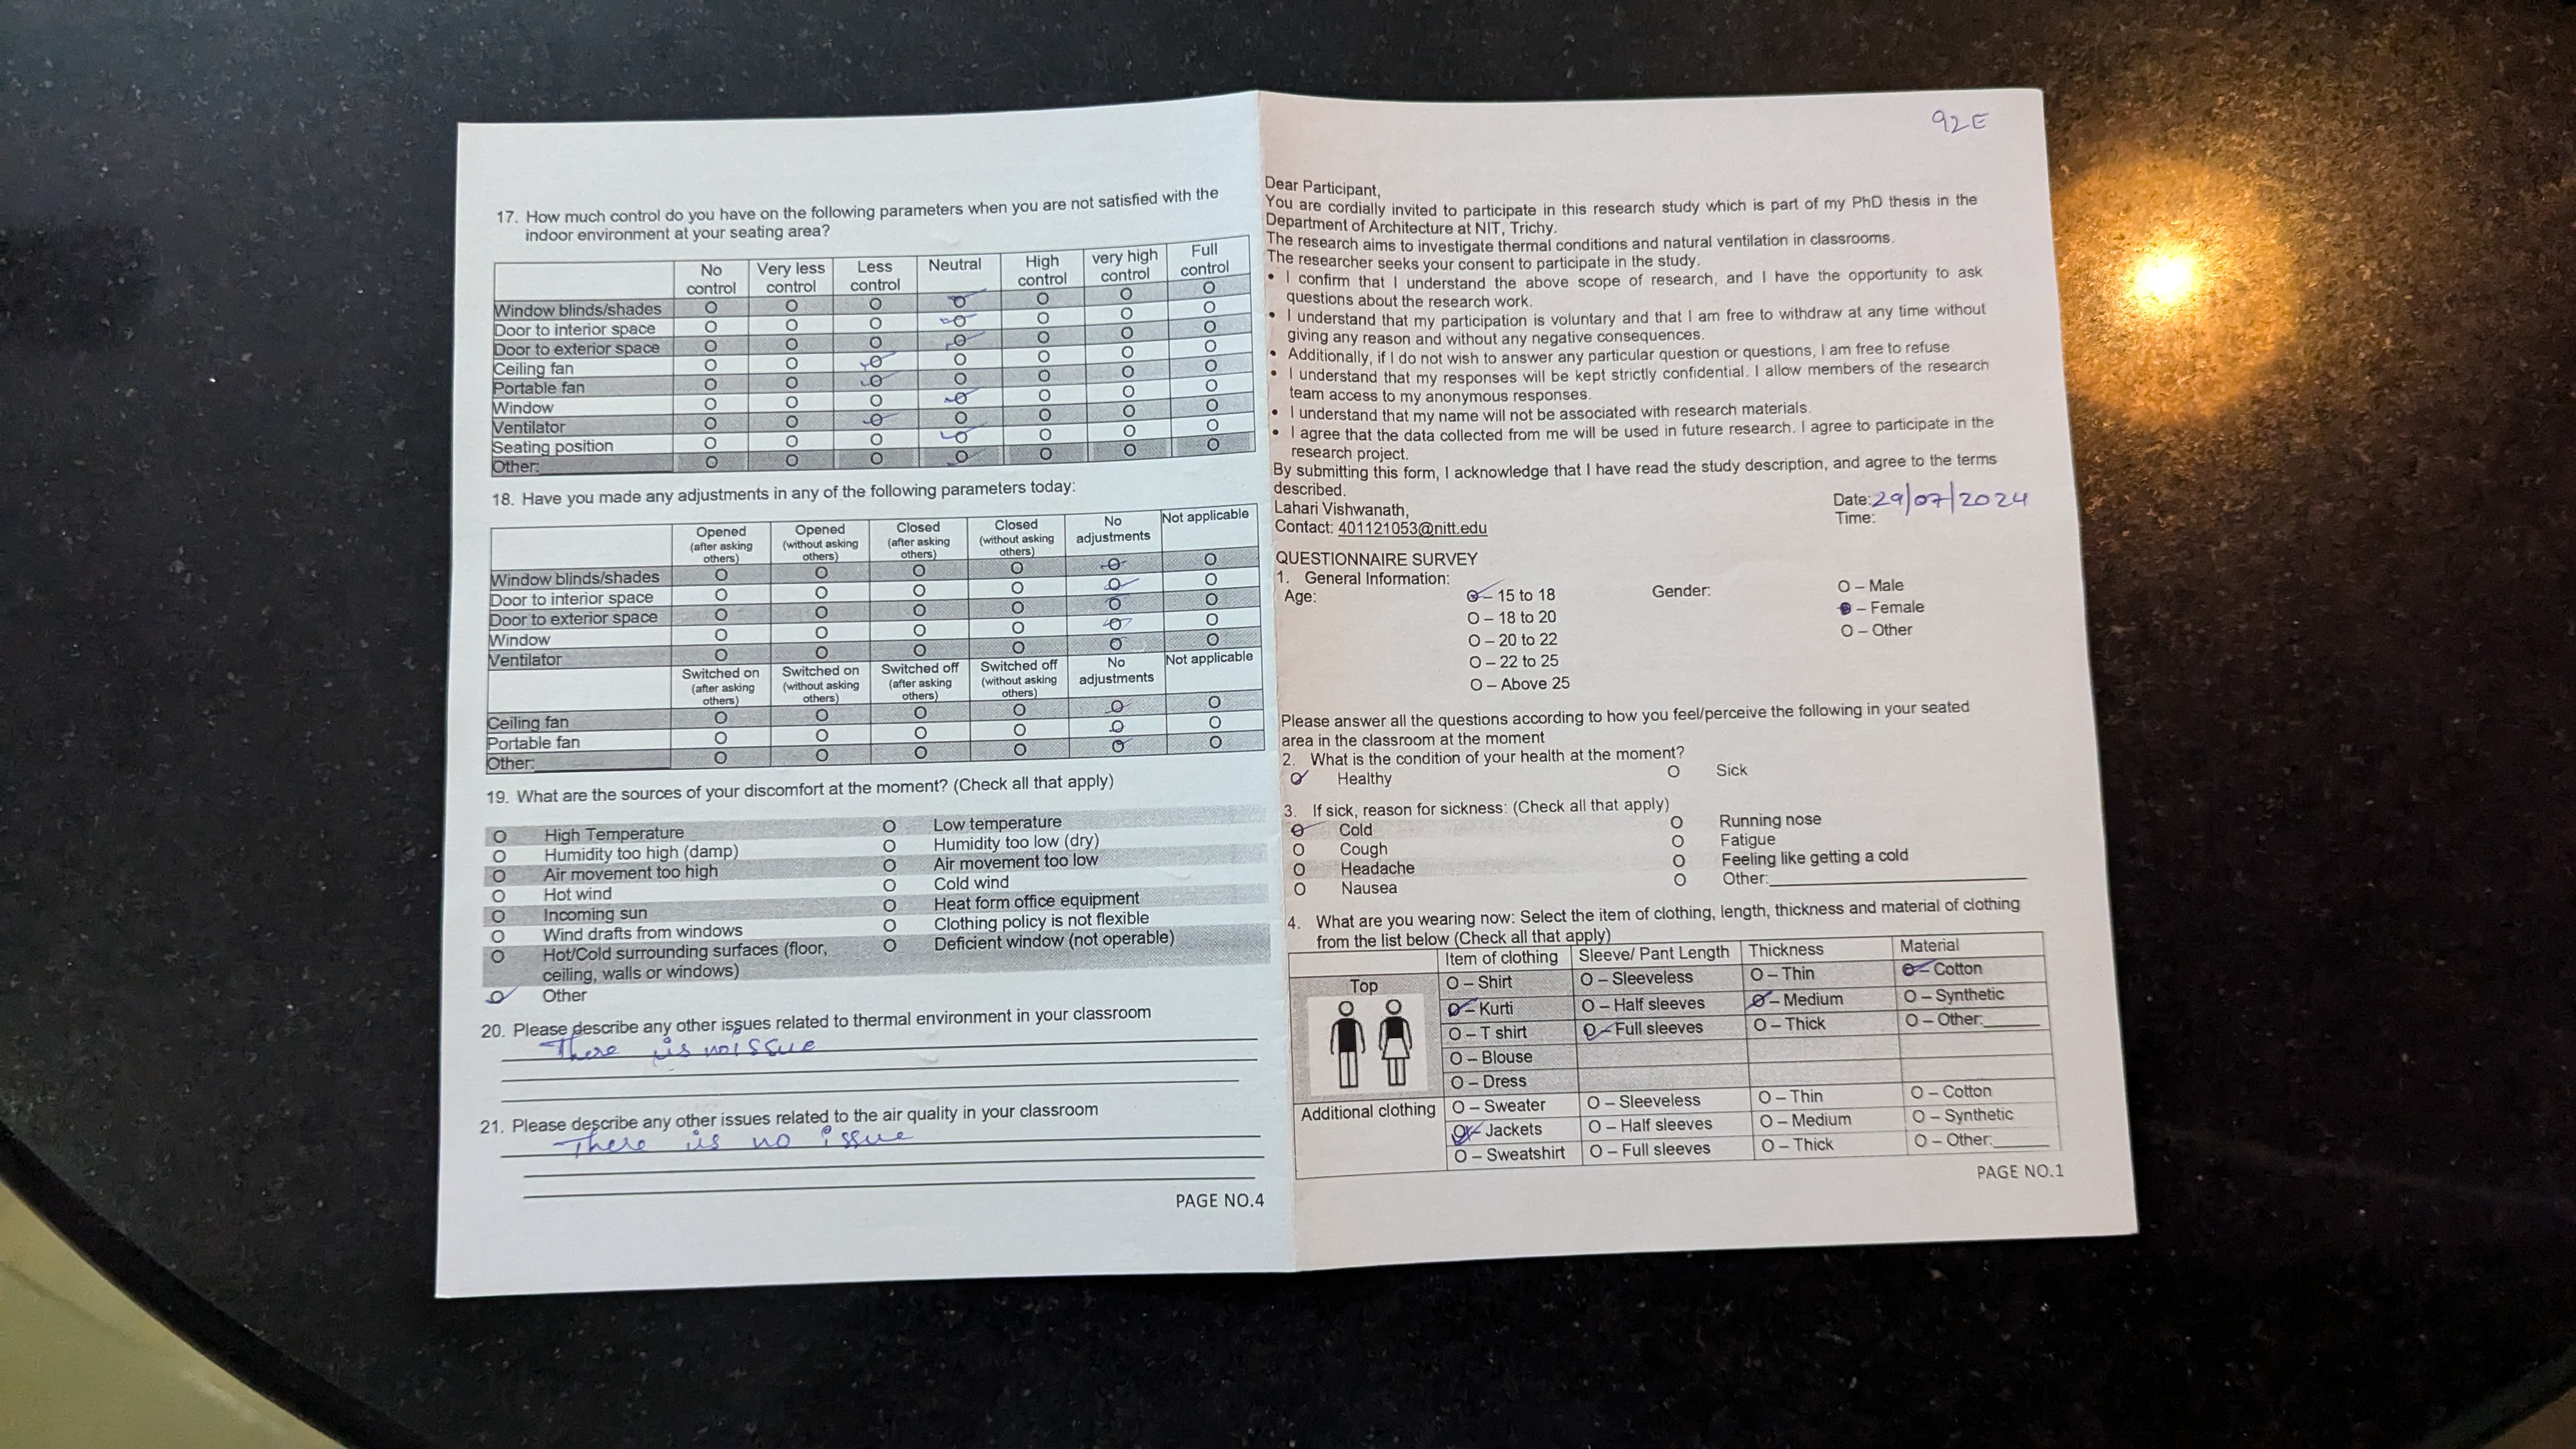 17. How much control do you have on the following parameters when you are not satisfied with the
indoor environment at your seating area?
No control Very less control Less control Neutral High control very high control Full control
Window blinds/shades O O O O O O O
Door to interior space O O O O O O O
Door to exterior space O O O O O O O
Ceiling fan O O O O O O O
Portable fan O O O O O O O
Window O O O O O O O
Ventilator O O O O O O O
Seating position O O O O O O O
Other: O O O O O O O
18. Have you made any adjustments in any of the following parameters today:
Opened (after asking others) Opened (without asking others) Closed (after asking others) Closed (without asking others) No adjustments Not applicable
Window blinds/shades O O O O O O
Door to interior space O O O O O O
Door to exterior space O O O O O O
Window O O O O O O
Ventilator O O O O O O
Switched on (after asking others) Switched on (without asking others) Switched off (after asking others) Switched off (without asking others) No adjustments Not applicable
Ceiling fan O O O O O O
Portable fan O O O O O O
Other: O O O O O O
19. What are the sources of your discomfort at the moment? (Check all that apply)
O High Temperature O Low temperature
O Humidity too high (damp) O Humidity too low (dry)
O Air movement too high O Air movement too low
O Hot wind O Cold wind
O Incoming sun O Heat form office equipment
O Wind drafts from windows O Clothing policy is not flexible
O Hot/Cold surrounding surfaces (floor, O Deficient window (not operable)
ceiling, walls or windows)
O Other
20. Please describe any other issues related to thermal environment in your classroom
There is no issue
21. Please describe any other issues related to the air quality in your classroom
There is no issue
PAGE NO.4
92E
Dear Participant,
You are cordially invited to participate in this research study which is part of my PhD thesis in the
Department of Architecture at NIT, Trichy.
The research aims to investigate thermal conditions and natural ventilation in classrooms.
The researcher seeks your consent to participate in the study.
• I confirm that I understand the above scope of research, and I have the opportunity to ask
questions about the research work.
• I understand that my participation is voluntary and that I am free to withdraw at any time without
giving any reason and without any negative consequences.
• Additionally, if I do not wish to answer any particular question or questions, I am free to refuse
• I understand that my responses will be kept strictly confidential. I allow members of the research
team access to my anonymous responses.
• I understand that my name will not be associated with research materials.
• I agree that the data collected from me will be used in future research. I agree to participate in the
research project.
By submitting this form, I acknowledge that I have read the study description, and agree to the terms
described.
Lahari Vishwanath, Date: 29/07/2024
Contact: 401121053@nitt.edu Time:
QUESTIONNAIRE SURVEY
1. General Information:
Age: O – 15 to 18 Gender: O – Male
O – 18 to 20 O – Female
O – 20 to 22 O – Other
O – 22 to 25
O – Above 25
Please answer all the questions according to how you feel/perceive the following in your seated
area in the classroom at the moment
2. What is the condition of your health at the moment?
O Healthy O Sick
3. If sick, reason for sickness: (Check all that apply)
O Cold O Running nose
O Cough O Fatigue
O Headache O Feeling like getting a cold
O Nausea O Other:
4. What are you wearing now: Select the item of clothing, length, thickness and material of clothing
from the list below (Check all that apply)
Item of clothing Sleeve/ Pant Length Thickness Material
Top O – Shirt O – Sleeveless O – Thin O – Cotton
O – Kurti O – Half sleeves O – Medium O – Synthetic
O – T shirt O – Full sleeves O – Thick O – Other:
O – Blouse
O – Dress
Additional clothing O – Sweater O – Sleeveless O – Thin O – Cotton
O – Jackets O – Half sleeves O – Medium O – Synthetic
O – Sweatshirt O – Full sleeves O – Thick O – Other:
PAGE NO.1